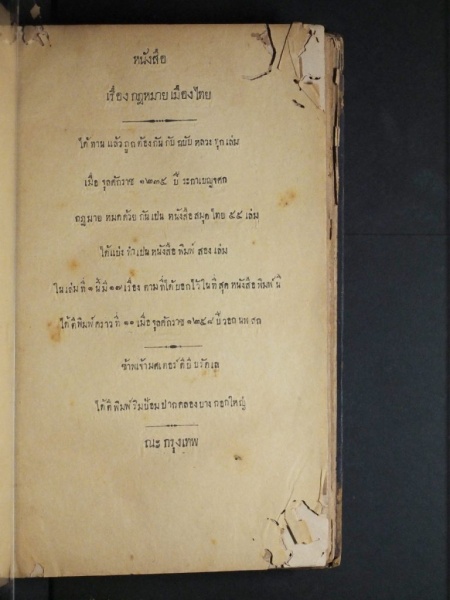 หนังสือ
เรื่อง กฎหมาย เมืองไทย
ได้ ทาน แล้ว ถูก ต้อง กัน กับ ฉบับ หลวง ทุก เล่ม
เมื่อ จุลศักราช ๑๒๓๕ ปี ระกาเบญจศก
กฎมาย หมด ด้วย กัน เปน หนังสือ สมุด ไทย ๕๕ เล่ม
ได้แบ่ง ทำ เปน หนังสือ พิมพ์ สอง เล่ม
ใน เล่ม ที่ ๑ นี้ มี ๑๗ เรื่อง ตาม ที่ได้ บอก ไว้ ใน ที่ สุด หนังสือ พิมพ์ นี้
ได้ ตีพิมพ์ คราว ที่ ๑๐ เมื่อ จุลศักราช ๑๒๕๘ ปี วอก
ข้าพเจ้า ดี บี บรัดเล
ได้ ตี พิมพ์ ริม ป้อม ปาก คลอง บาง กอกใหญ่
ณะ กรุงเทพ